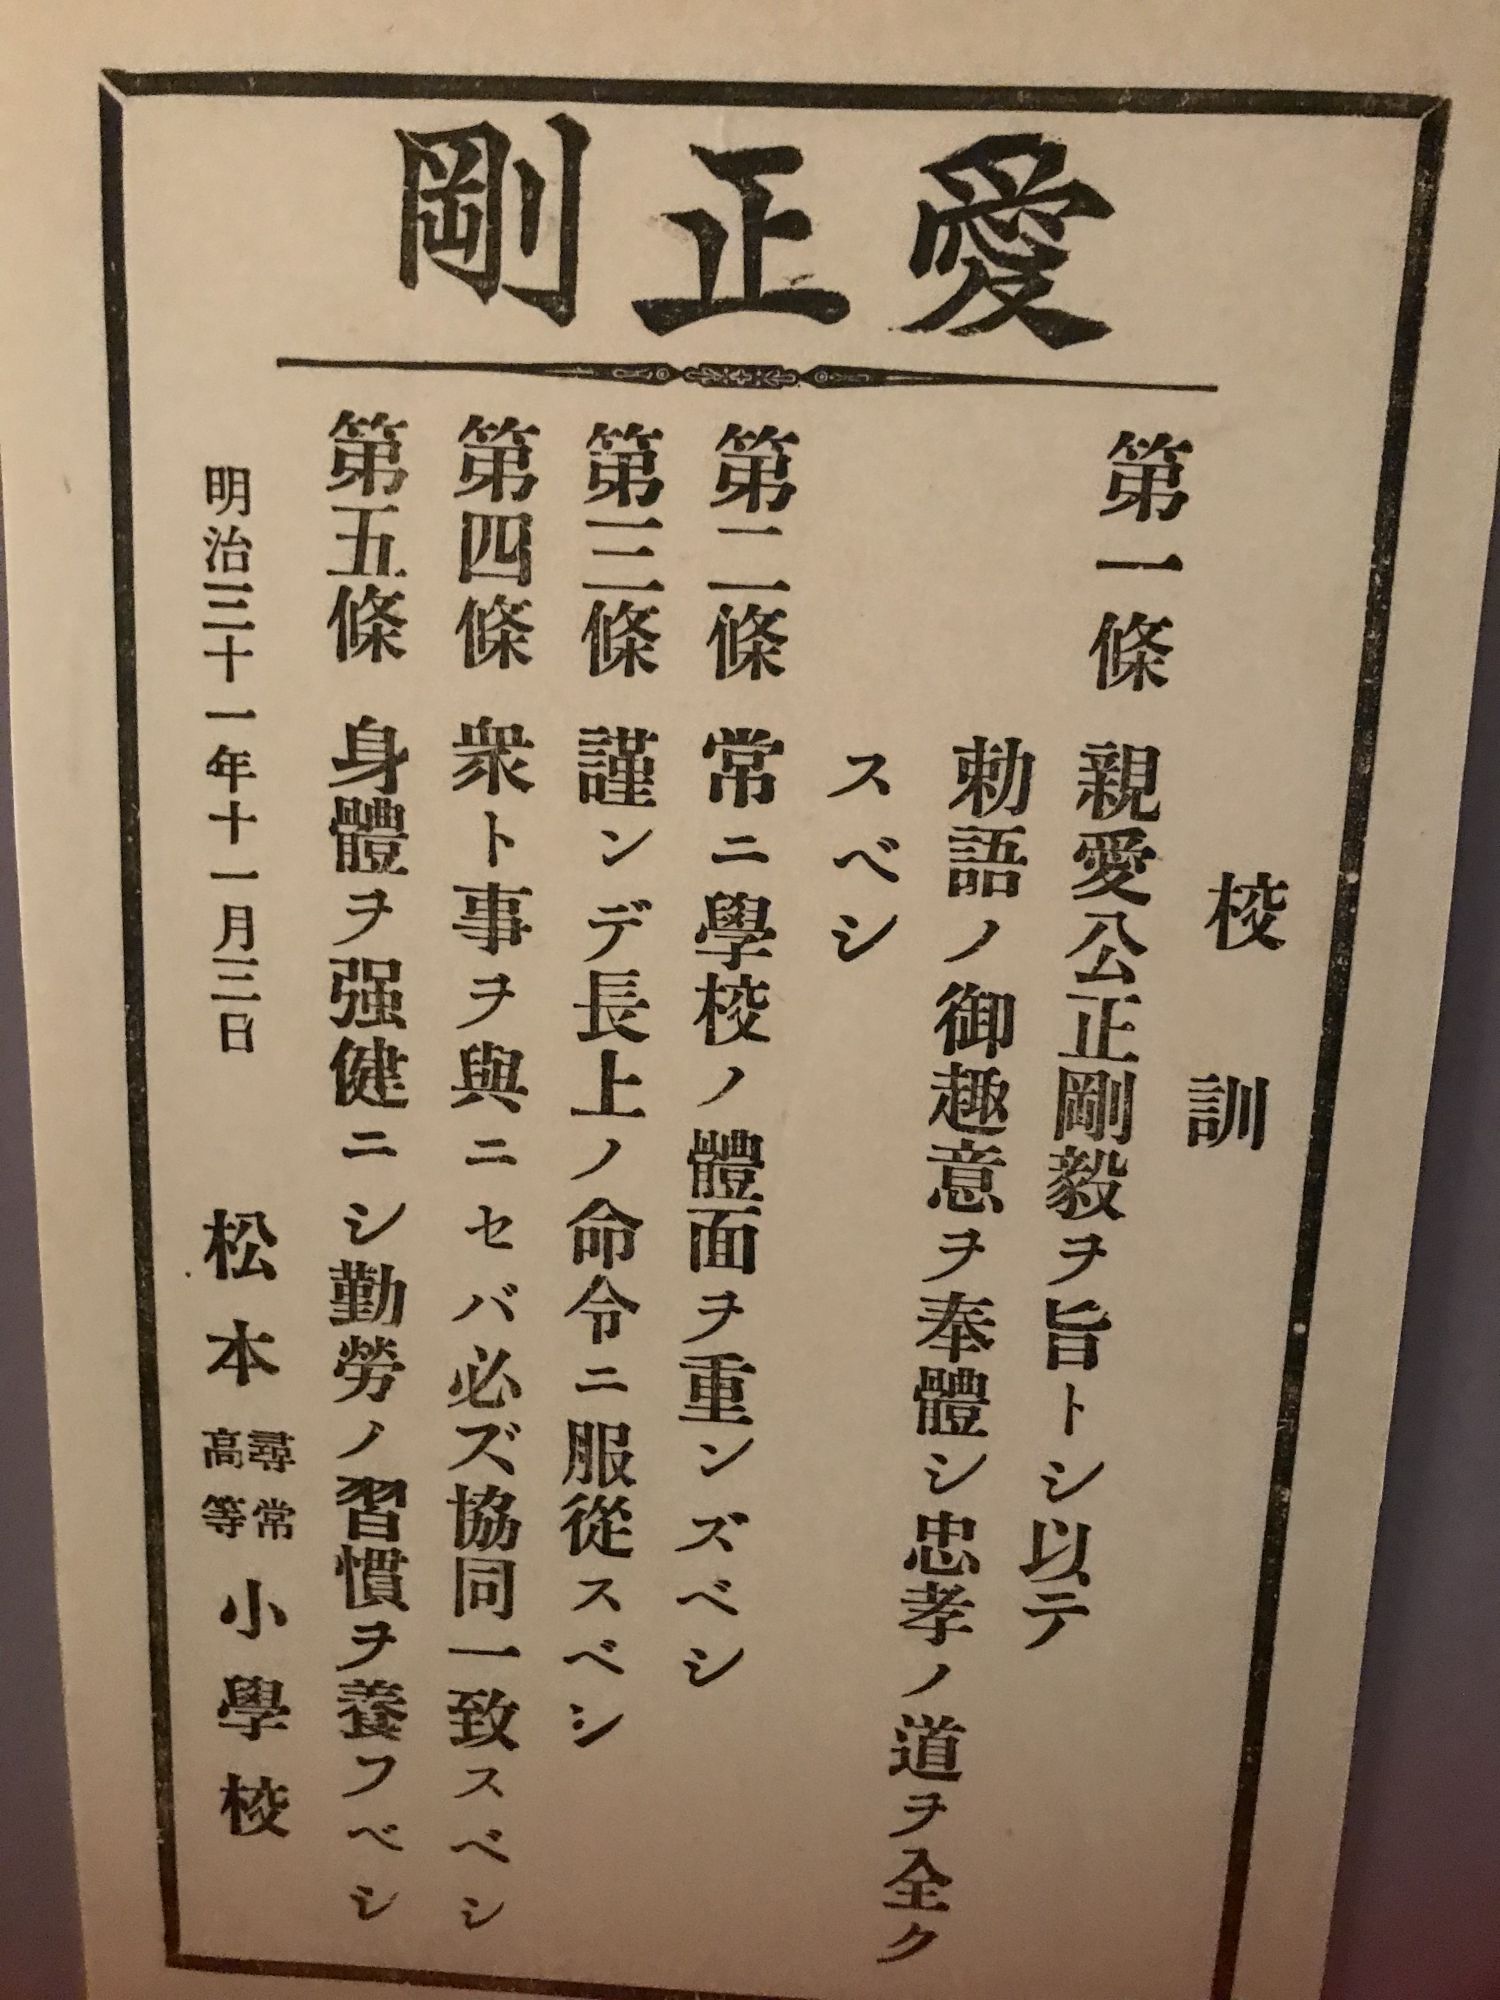 愛正剛
校訓
第一條 親愛公正剛毅ヲ旨トシ以テ
勅語ノ御趣意ヲ奉體シ忠孝ノ道ヲ全ク
スベシ
第二條 常ニ學校ノ體面ヲ重ンズベシ
第三條 謹ンデ長上ノ命令ニ服從スベシ
第四條 衆ト事ヲ與ニセバ必ズ協同一致スベシ
第五條 身體ヲ强健ニシ勤勞ノ習慣ヲ養フベシ
明治三十一年十一月三日 松本尋常高等小學校